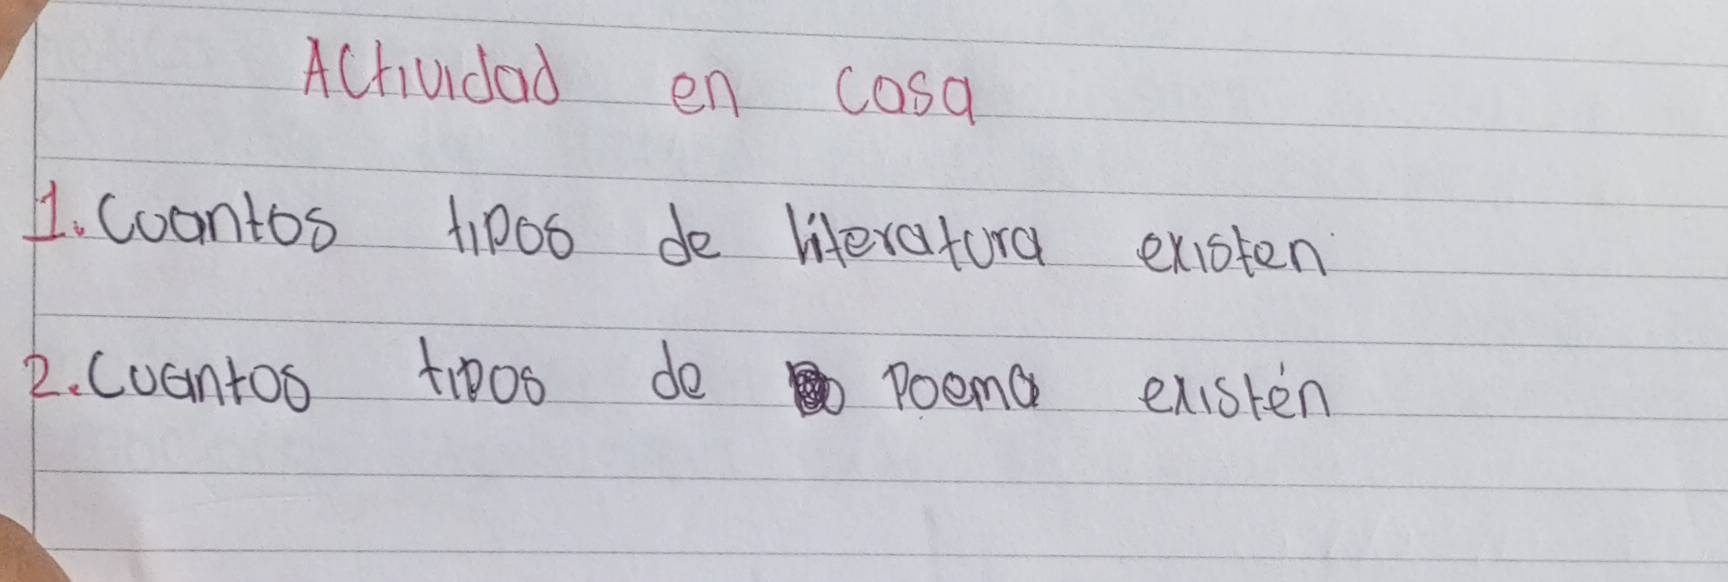 Actividad en casa
1. Cuantos tipos de literatura existen
2. Cuantos tipos de Poema existén